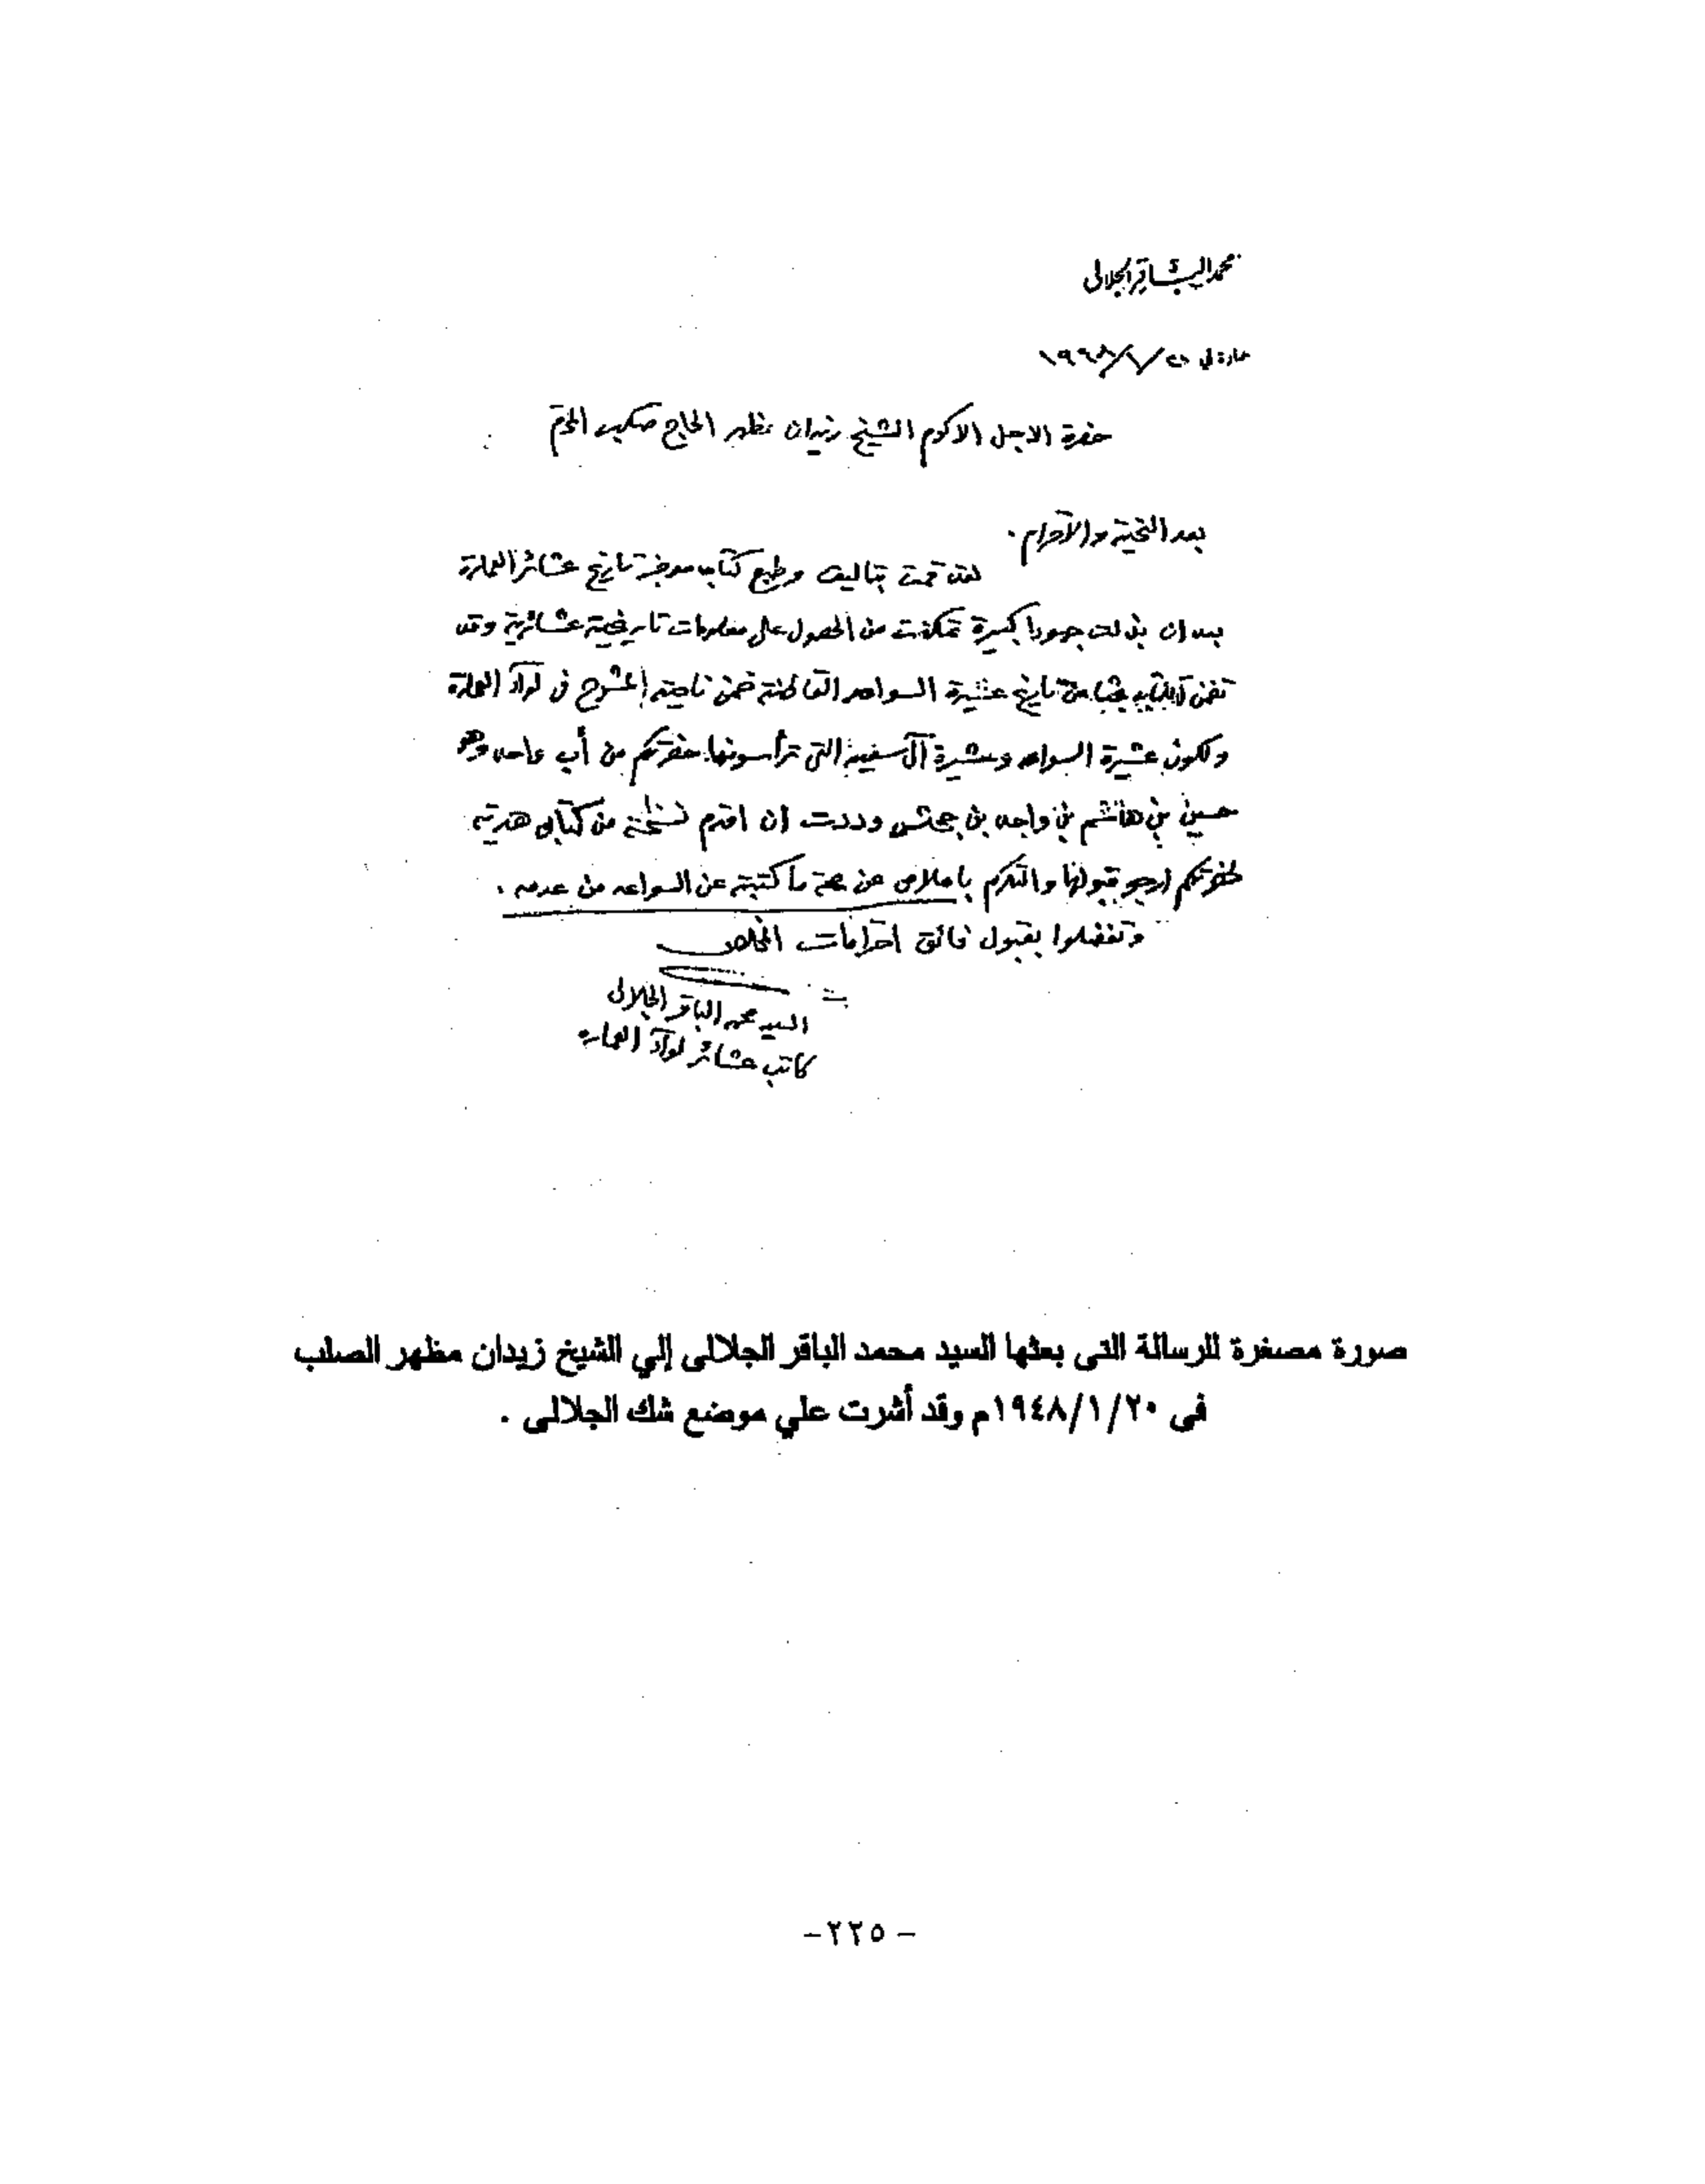 محمد الباقر الجلالي
عمارة في
حضرة الاجل الاكرم الشيخ زيدان مظهر الحاج صكب المحترم
بعد التحية والاحترام .
لقد قمت بتأليف وطبع كتاب موجز تاريخ عشائر العمارة
بعد ان بذلت جهودا كبيرة تمكنت من الحصول على معلومات تاريخية عشائرية وقد
تضمن تاريخ عشيرة السواعد القاطنة ضمن ناحية المشرح في لواء العمارة
ولكون عشيرة السواعد وعشيرة آل سفينة التي ترأسونها حضرتكم من أب واحد وهو
حسين بن هاشم بن واجد بن جحش وددت ان اقدم نسخة من كتابي هدية
لحضرتكم ارجو قبولها والتكرم باعلامي عن صحة ما كتبته عن السواعد من عدمه .
وتفضلوا بقبول فائق احترامات المخلص
السيد محمد الباقر الجلالي
كاتب عشائر لواء العمارة
صورة مصغرة للرسالة التى بعثها السيد محمد الباقر الجلالى إلي الشيخ زيدان مظهر الصلب
فى ١٩٤٨/١/٢٠م وقد أشرت علي موضع شك الجلالى .
- ٢٢٥ -